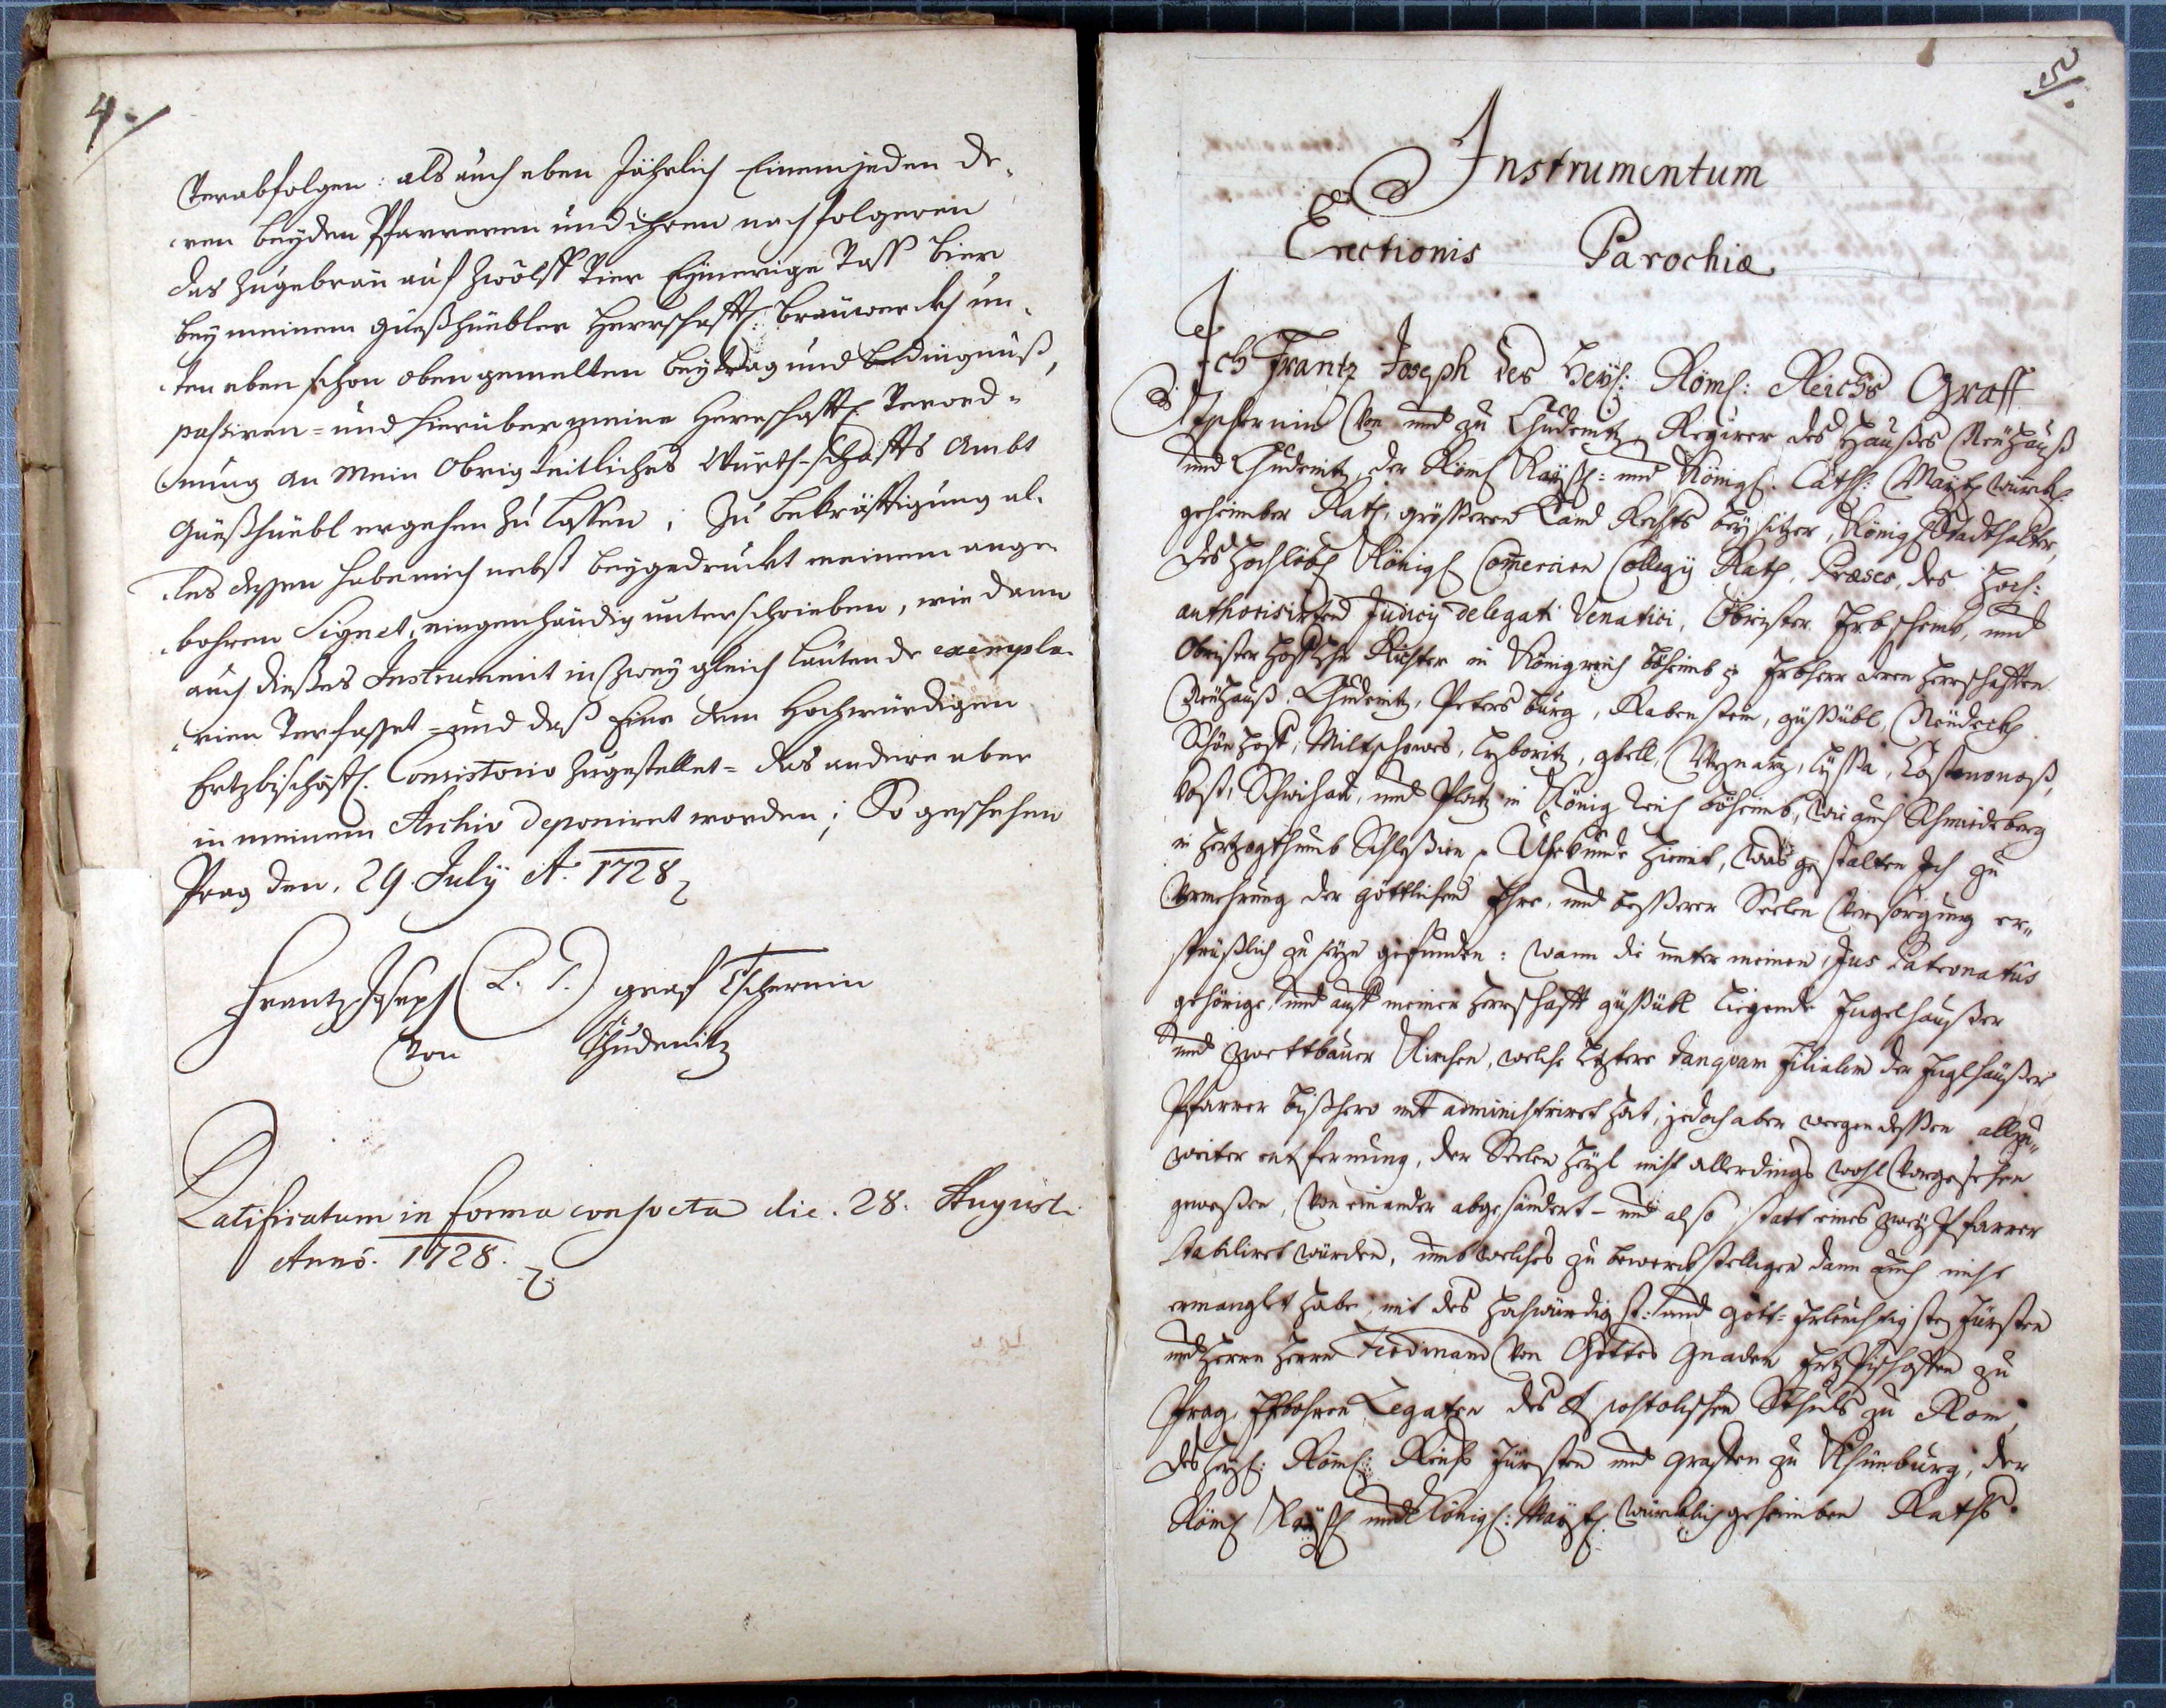 4.
Verabfolgen: als auch eben Jährlich Einem jeden de-
ren beyden Pfarreren und ihren nachfolgeren
das zugebraü auf zwölff Vier Eymerige Vass bier
bey meinem Güeßhüebler Herrschafftl: Bräuwerckh un-
ten eben schon oben gemelten beytrag und bedingnuß,
passiren = und hierüber meine Herrschafftl: Verord-
nung an Mein Obrigkeitliches Würth-schaffts Ambt
Güeßhüebl ergehen zu lassen; Zu bekräfftigung al-
les dessen habe mich nebst beygedruckt meinem ange-
bohren Signet, eingenhändig unterschrieben, wie dann
auch dießes Instrument in Zwey gleich lautende exempla-
rien Verfasset = und daß Eine dem Hochwürdigen
Ertzbischöffl: Consistorio zugestellet = das andere aber
in meinem Archiv deponiret worden; So geschehen
Prag den. 29 July Ao. 1728
Frantz Joseph (L. S.) graf Tschernin
Von Chudenitz
Ratificatum in forma consueta die. 28. Augusti
Anno. 1728.
5.
Instrumentum
Erectionis Parochiæ
Ich Frantz Joseph des Heyl: Röml: Reichs Graff
Tschernin Von und zu Chudenitz, Regirer des Haußes Neühauß
und Chudenitz, der Röml Kayßl: und Königl: Cathl: Mayt: würckl:
geheimber Rath, grösseren Land Rechts beysitzer, Königl Stadthalter,
des Hochlöbl Königl Comercien Collegij Rath, Præses, des Hoch:
authorisirten Judicij delegati Venatici, Obrister Erbschenk, und
Obrister Hoff Lehn Richter in Königreich böheimb Erbherr deren Herrschafften
Neühauß, Chudenitz, Petersburg, Rabenstein, güßhübl, Neüdeckh
Schönhoff, Miltschowes, Gbell, Lyssa, Kostomlath,
Kost, Schwihau, und Platz in König Reich böheimb, wie auch Schmiedeberg
in Hertzogthumb Schlesien Uhrkunde hiemit, was gestalten Ich zu
Vermehrung der göttlichen Ehre, und besserer Seelen Versorgung er-
sprüßlich zu seyn gefunden: wann die unter meinen Jus Patronatus
gehörige, und auff meiner Herrschafft güßhübl liegende Engelhaußer
und Zwettbauer Kirchen, welche letztere tanquam Filialem der Englhaußer
Pfarrer bißhero mit administriret hat, jedoch aber wegen dessen allzu-
weiter entfernung, der Seelen Heyl nicht allerdings wohl Vorgesehen
geweßen, Von einander abgesöndert - und also statt eines zwey Pfarrer
stabiliret würden, umb welches zu bewerckstelligen dann auch nicht
ermanglet habe mit des Hochwürdigst: und Gott-Erleuchtigsten Fürsten
und Herrn Herrn Ferdinand Von Gottes Gnaden Ertz Bischoffen zu
Prag, Gebohren Legaten des Apostolischen Stuhls zu Rom
des Heyl: Röml: Reichs Fürsten und Graffen zu Khünburg, der
Röml Kayßl und Königl: Mayst: würcklich geheimben Raths